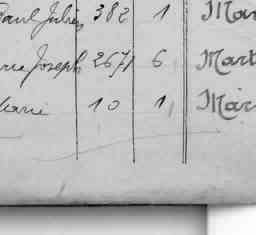 Paul Julien 382 1 Mar
rre Joseph 2671 6 Mart
Marie 10 1 Mar